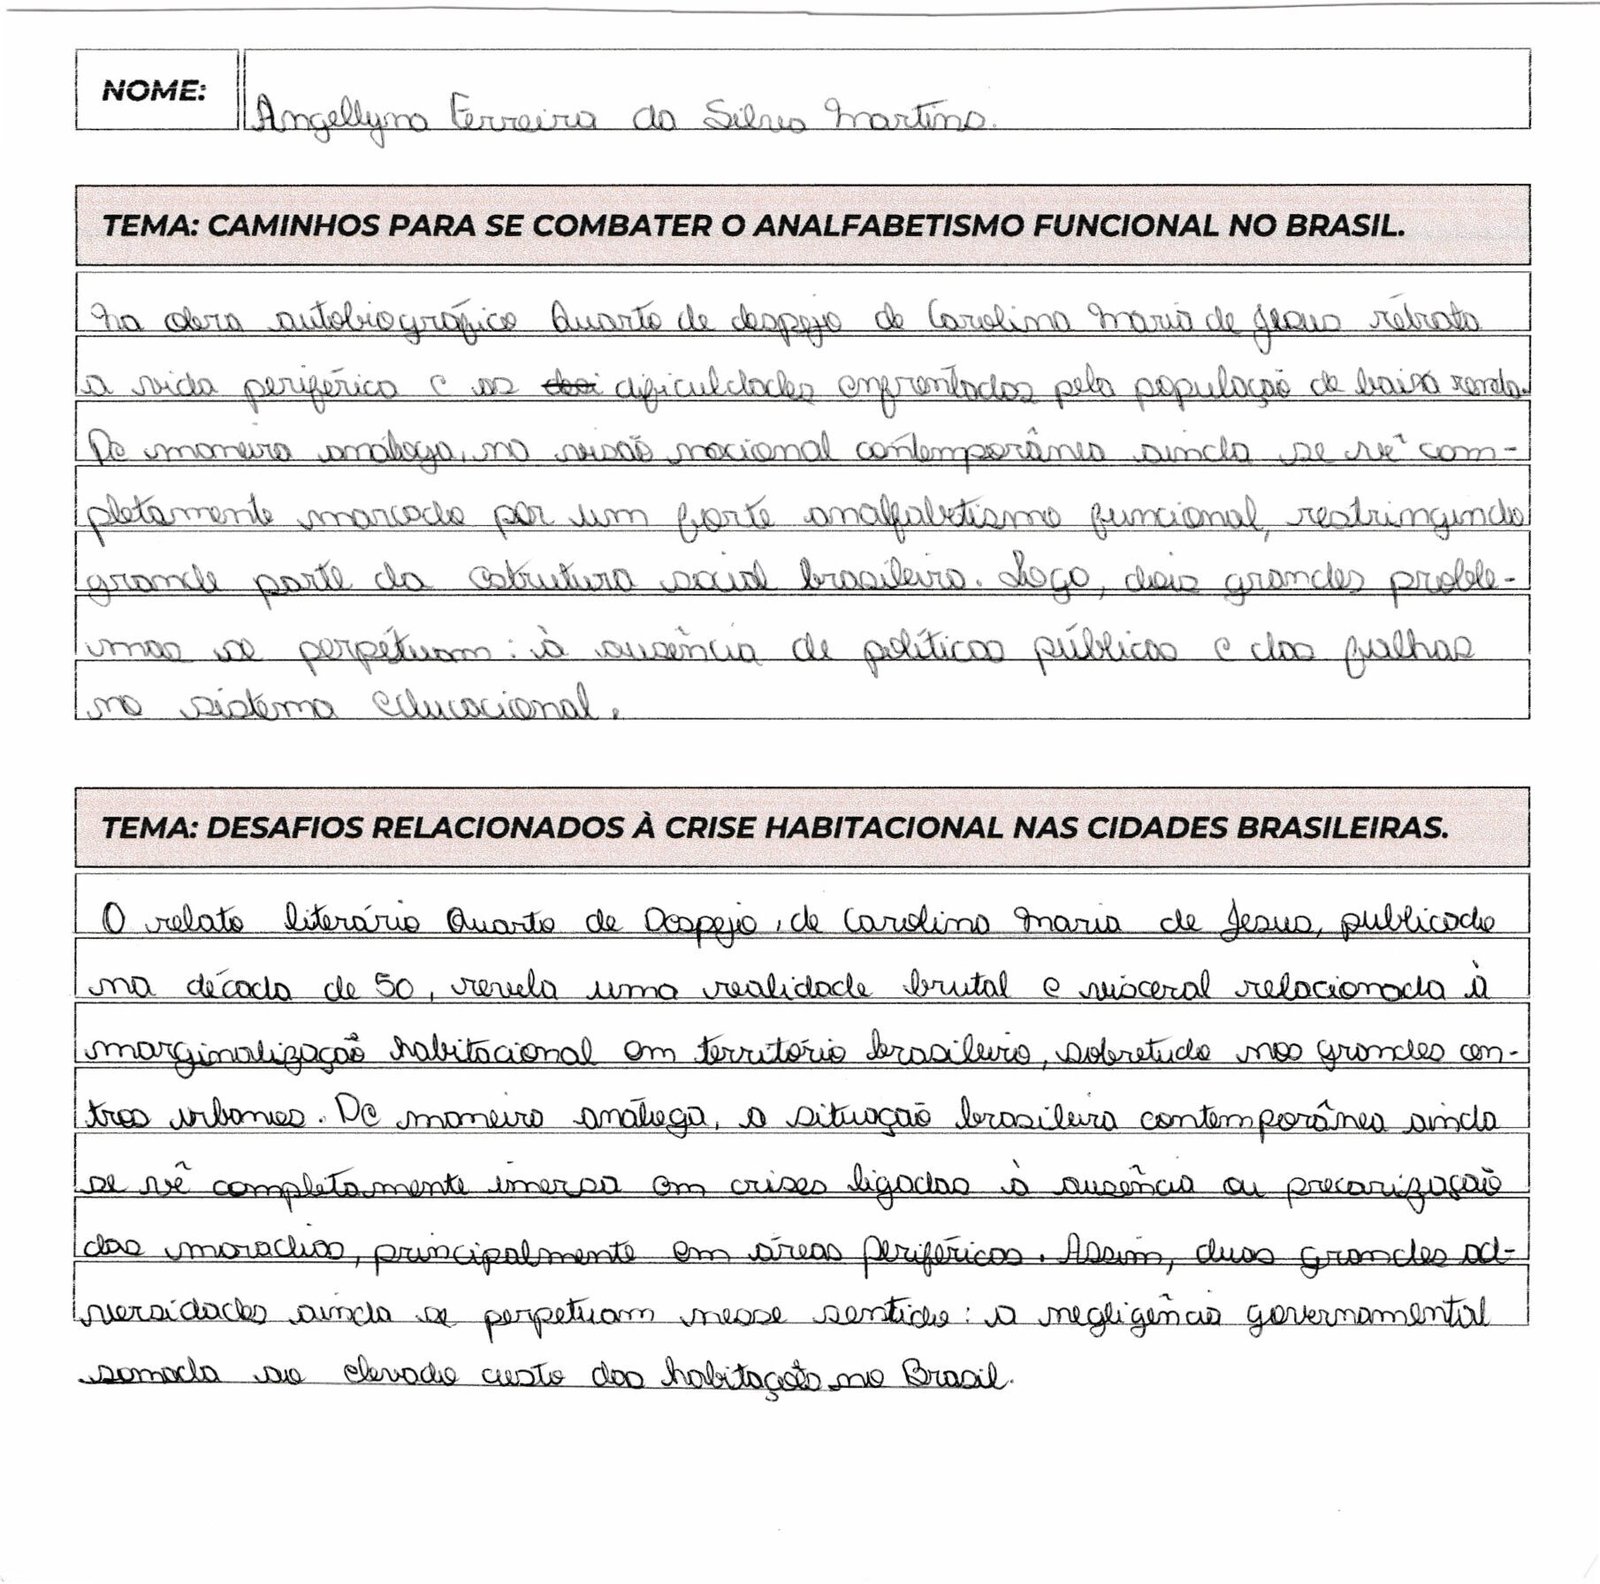 NOME: Angellyna Ferreira da Silva Martins.
TEMA: CAMINHOS PARA SE COMBATER O ANALFABETISMO FUNCIONAL NO BRASIL.
Na obra autobiográfica Quarto de despejo de Carolina Maria de Jesus retrata
a vida periférica e as dificuldades enfrentadas pela população de baixa renda.
De maneira análoga, na visão nacional contemporânea ainda se vê com-
pletamente marcada por um forte analfabetismo funcional, restringindo
grande parte da estrutura social brasileira. Logo, dois grandes proble-
mas se perpétuam: à ausência de políticas públicas e das falhas
no sistema educacional.
TEMA: DESAFIOS RELACIONADOS À CRISE HABITACIONAL NAS CIDADES BRASILEIRAS.
O relato literário Quarto de Despejo, de Carolina Maria de Jesus, publicado
na década de 50, revela uma realidade brutal e visceral relacionada à
marginalização habitacional em território brasileiro, sobretudo nos grandes cen-
tros urbanos. De maneira análoga, a situação brasileira contemporânea ainda
se vê completamente imersa em crises ligadas à ausência ou precarização
das moradias, principalmente em áreas periféricas. Assim, duas grandes ad-
versidades ainda se perpetuam nesse sentido: a negligência governamental
somada ao elevado custo das habitações no Brasil.